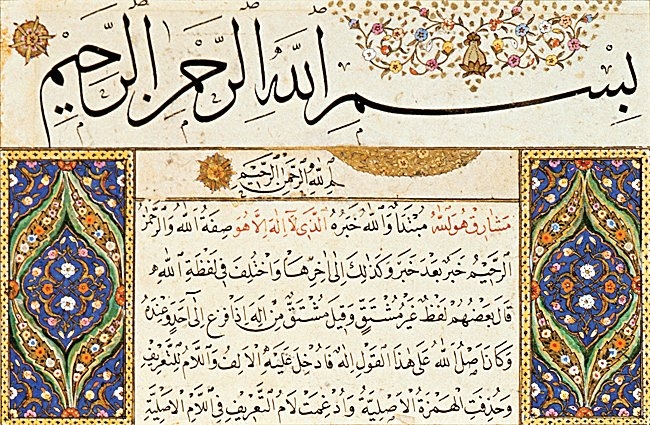 بِسْمِ اللَّهِ الرَّحْمٰنِ الرَّحِيمِ
بسم الله الرحمن الرحيم
هو الله مبتدأ والله خبره الذي لا اله الا هو صفة الله والرحمن
الرحيم خبر بعد خبر وكذلك الى اخرها واختلف في لفظة الله
قال بعضهم لفظ غير مشتق وقيل مشتق من اله اذا فزع الى احد وعنده
وكان اصل الله على هذا القول اله فادخل عليه الالف واللام للتعريف
وحذفت الهمزة الاصلية وادغمت لام التعريف في اللام الاصلية